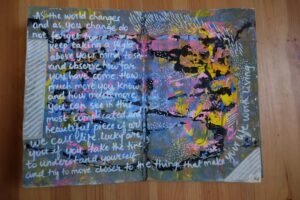 As the world changes
and as you change do
not forget to
keep taking a flight
above your mind to sit
and observe how far
you have come. How
much more you know
and how much more
you can see in this
most complicated and
beautiful piece of art
we call life. Lucky are
you if you take the time
to understand yourself
and try to move closer to the things that make
your life worth living.